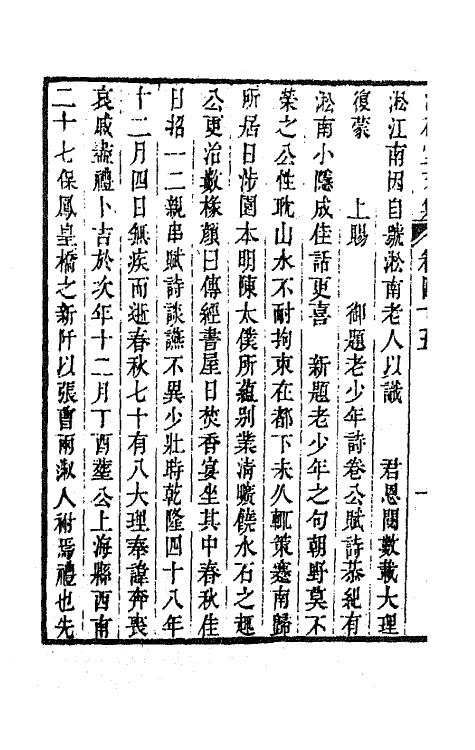 卷四十五
淞江南因自號淞南老人以識　君恩閱數載大理
復蒙　上賜　御題老少年詩卷公賦詩恭紀有
淞南小隱成佳話更喜　新題老少年之句朝野莫不
榮之公性耽山水不耐拘束在都下未久輒策蹇南歸
所居日涉園本明陳太僕所蘊别業清曠饒水石之趣
公更治數椽顏曰傳經書屋日焚香宴坐其中春秋佳
日招一二親串賦詩談讌不異少壯時乾隆四十八年
十二月四日無疾而逝春秋七十有八大理奉諱奔喪
哀戚盡禮卜吉於次年十二月丁酉塟公上海縣西南
二十七保鳳皇橋之新阡以張曹兩淑人祔焉禮也先